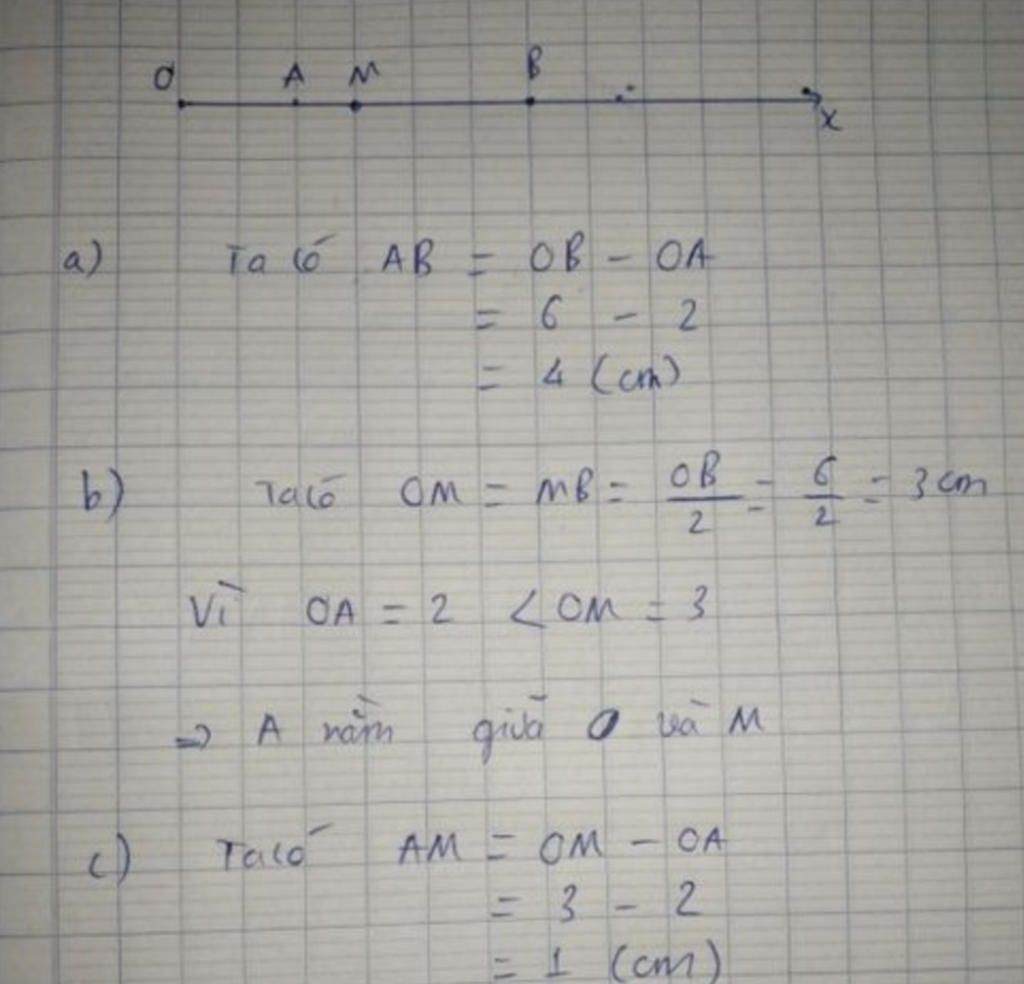 O A M B x
a) Ta có AB = OB - OA
= 6 - 2
= 4 (cm)
b) Ta có OM = MB = OB/2 = 6/2 = 3 cm
Vì OA = 2 < OM = 3
=> A nằm giữa O và M
c) Ta có AM = OM - OA
= 3 - 2
= 1 (cm)